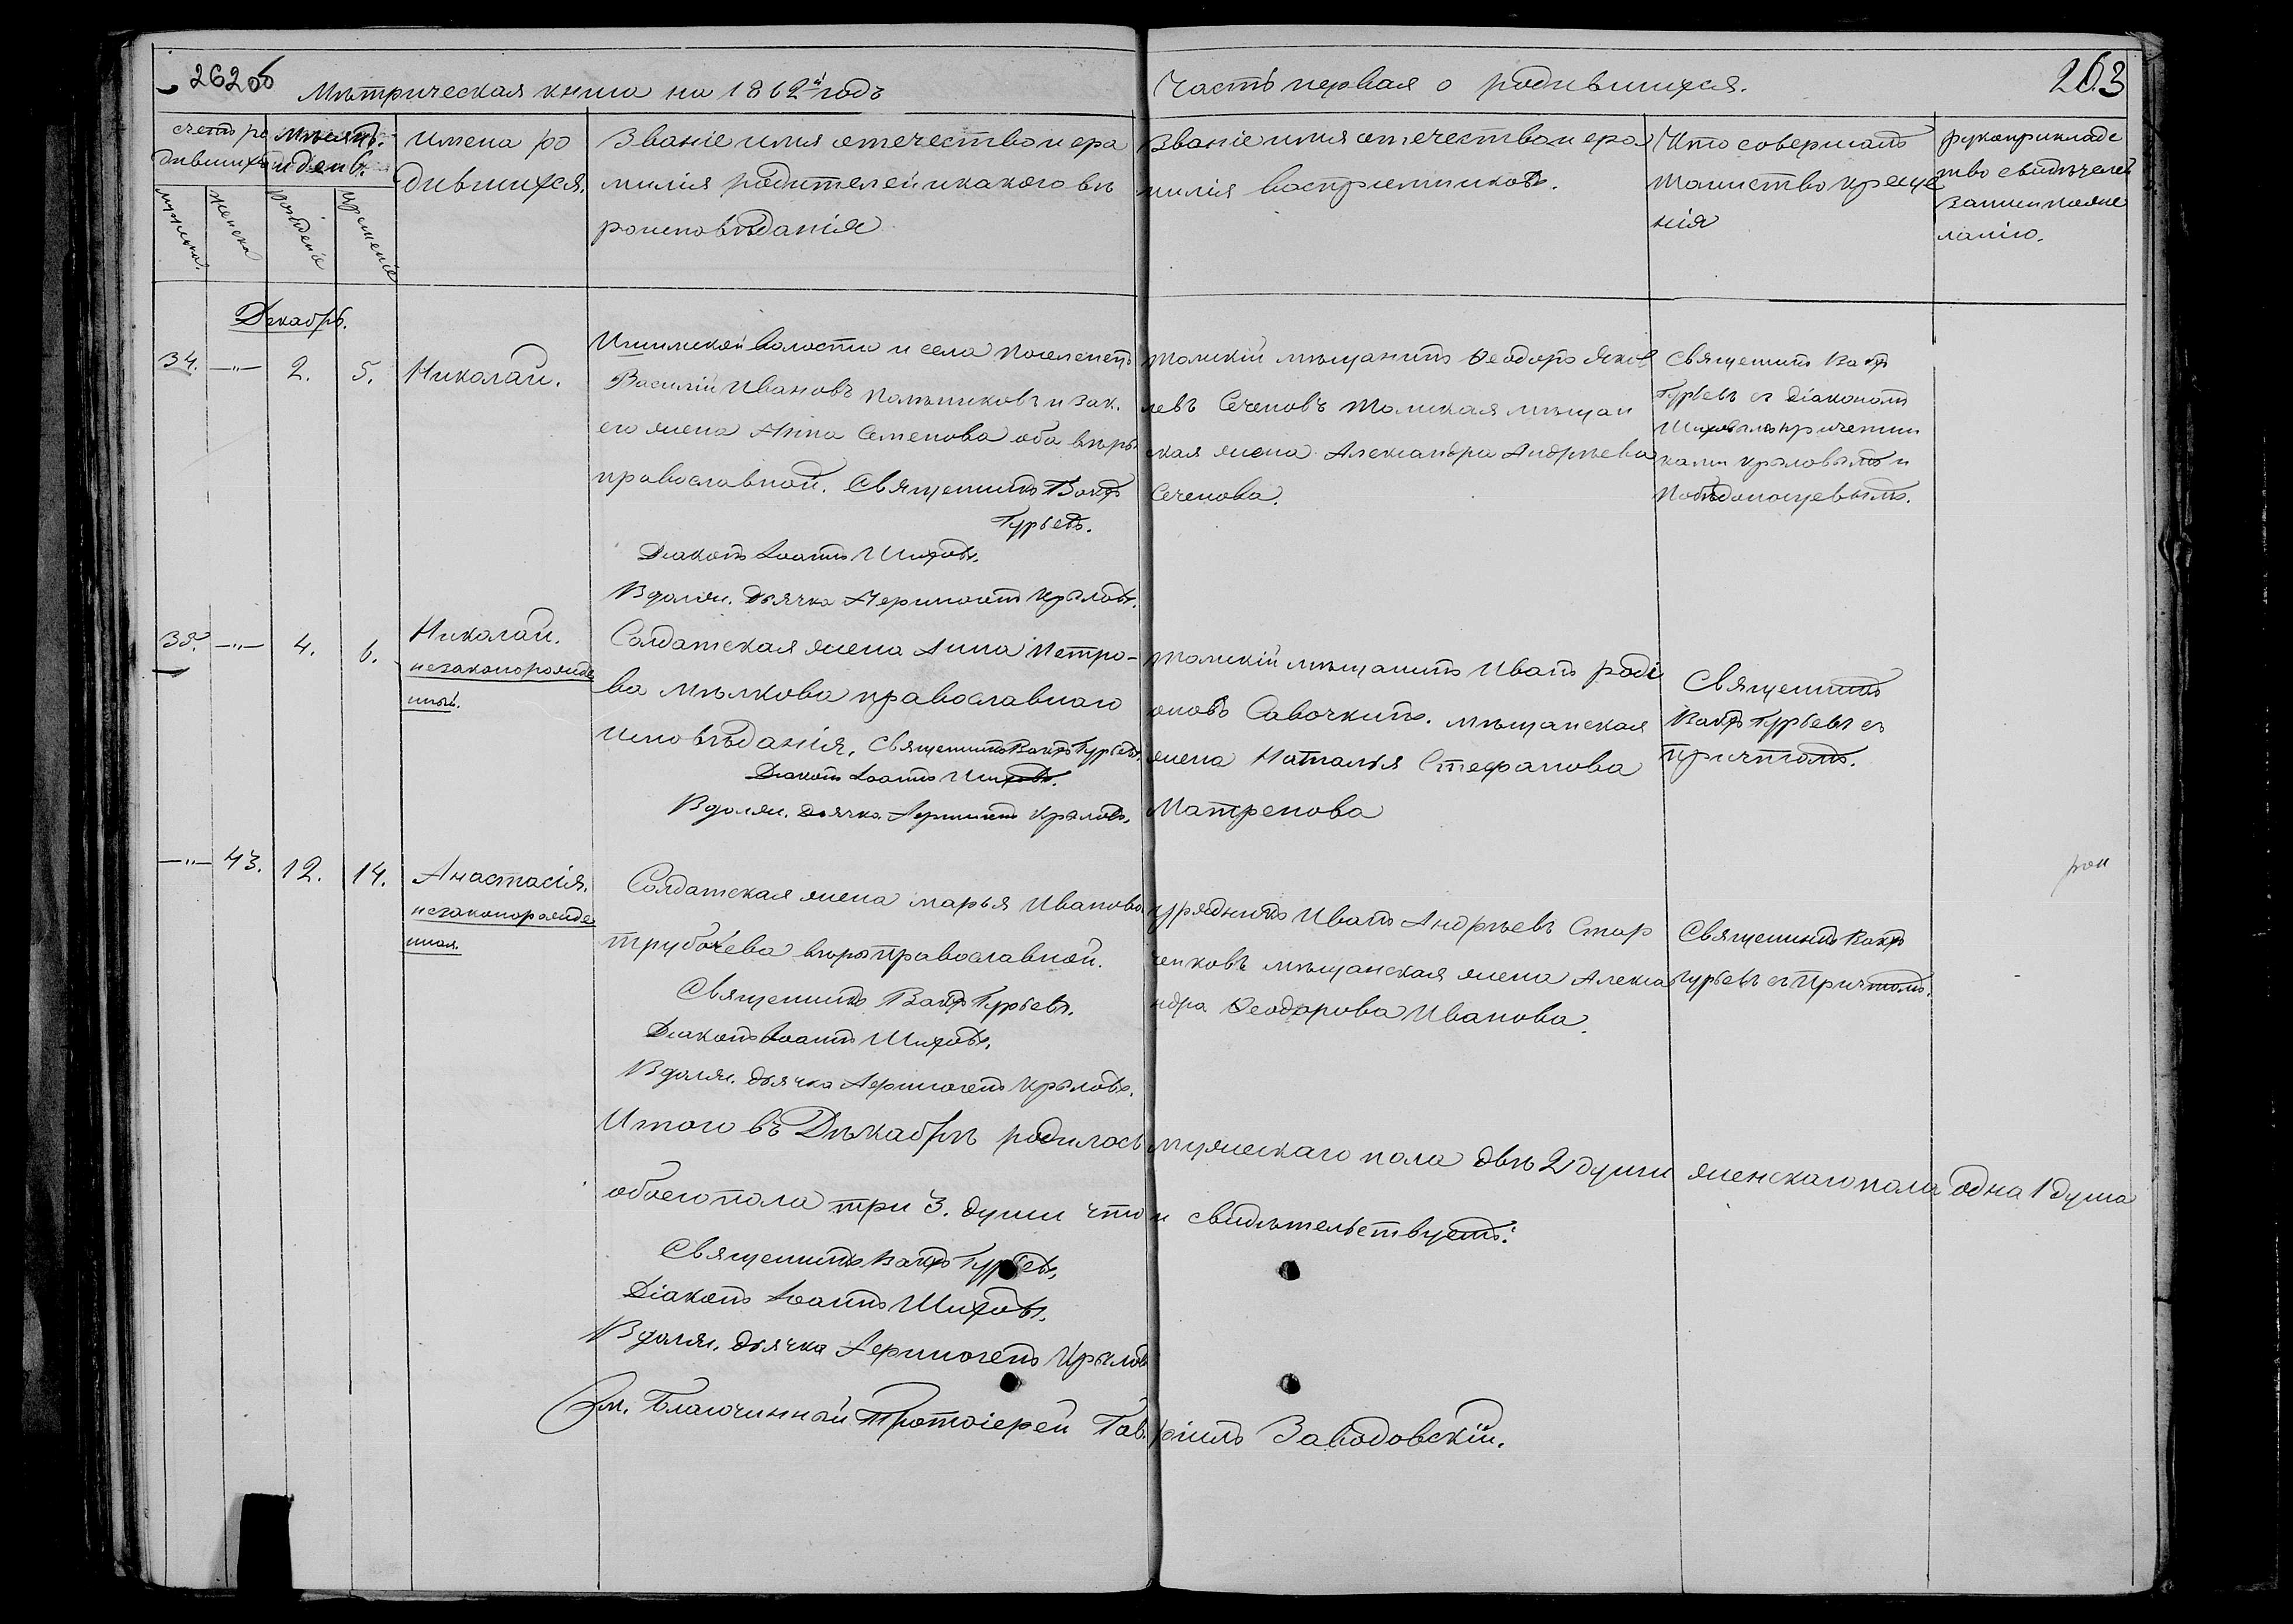 262об
263
Мѣтрическая книга на 1862й годъ
Часть первая о родившихся.
счетъ ро
дившихся
Мѣсяцъ
и день.
мужеска.
женска
рожденіе
крещеніе
имена ро
дившихся.
Званіе имя отечество и фа
милія родителей и какого вѣ
роисповѣданія
Званіе имя отечество и фа
милія воспріемниковъ.
Кто совершалъ
таинство креще
нія
рукоприкладс
тво свидѣтелей
записи по же
ланію.
Декабрь.
34.
—"—
2.
5.
Николай.
Ишимской волости и села поселенецъ
Василій Ивановъ Палашиковъ и зак.
его жена Анна Семенова оба вѣры
православной. Священникъ Вакхъ
Гурьевъ.
Діаконъ Іоаннъ Шиховъ.
В долж. дьячка Аермогенъ Крыловъ.
томскій мѣщанинъ Ѳеодоръ Яков
левъ Сеченовъ томская мѣщан
ская жена Александра Андрѣева
Сеченова.
Священникъ Вакхъ
Гурьевъ съ діакономъ
Шиховымъ причетни
ками Крыловымъ и
Побѣдоносцевымъ.
35.
—"—
4.
6.
Николай.
незаконорожде
нный.
Солдатская жена Анна Петро-
ва Мѣлкова православнаго
исповѣданія. Священникъ Вакхъ Гурьевъ.
Діаконъ Іоаннъ Шиховъ.
В долж. дьячка Аермогенъ Крыловъ.
томскій мѣщанинъ Иванъ Роді
оновъ Савочкинъ. мѣщанская
жена Наталья Стефанова
Матренова
Священникъ
Вакхъ Гурьевъ съ
причтомъ.
—"—
43.
12.
14.
Анастасія.
незаконорожде
нная.
Солдатская жена марья Иванова
трубачева вѣры православной.
Священникъ Вакхъ Гурьевъ.
Діаконъ Іоаннъ Шиховъ.
В долж. дьячка Аермогенъ Крыловъ.
урядникъ Иванъ Андрѣевъ Стар
ченковъ мѣщанская жена Алекса
ндра Ѳеодорова Иванова.
Священникъ Вакхъ
Гурьевъ съ причтомъ.
Итого въ Дѣкабрѣ родилось мужескаго пола двѣ 2 души женскаго пола одна 1 душа
обоего пола три 3. души что и свидѣтельствуетъ:
Священникъ Вакхъ Гурьевъ.
Діаконъ Іоаннъ Шиховъ.
В долж. дьячка Аермогенъ Крыловъ
Благочинный Протоіерей Гавріилъ Заводовскій.